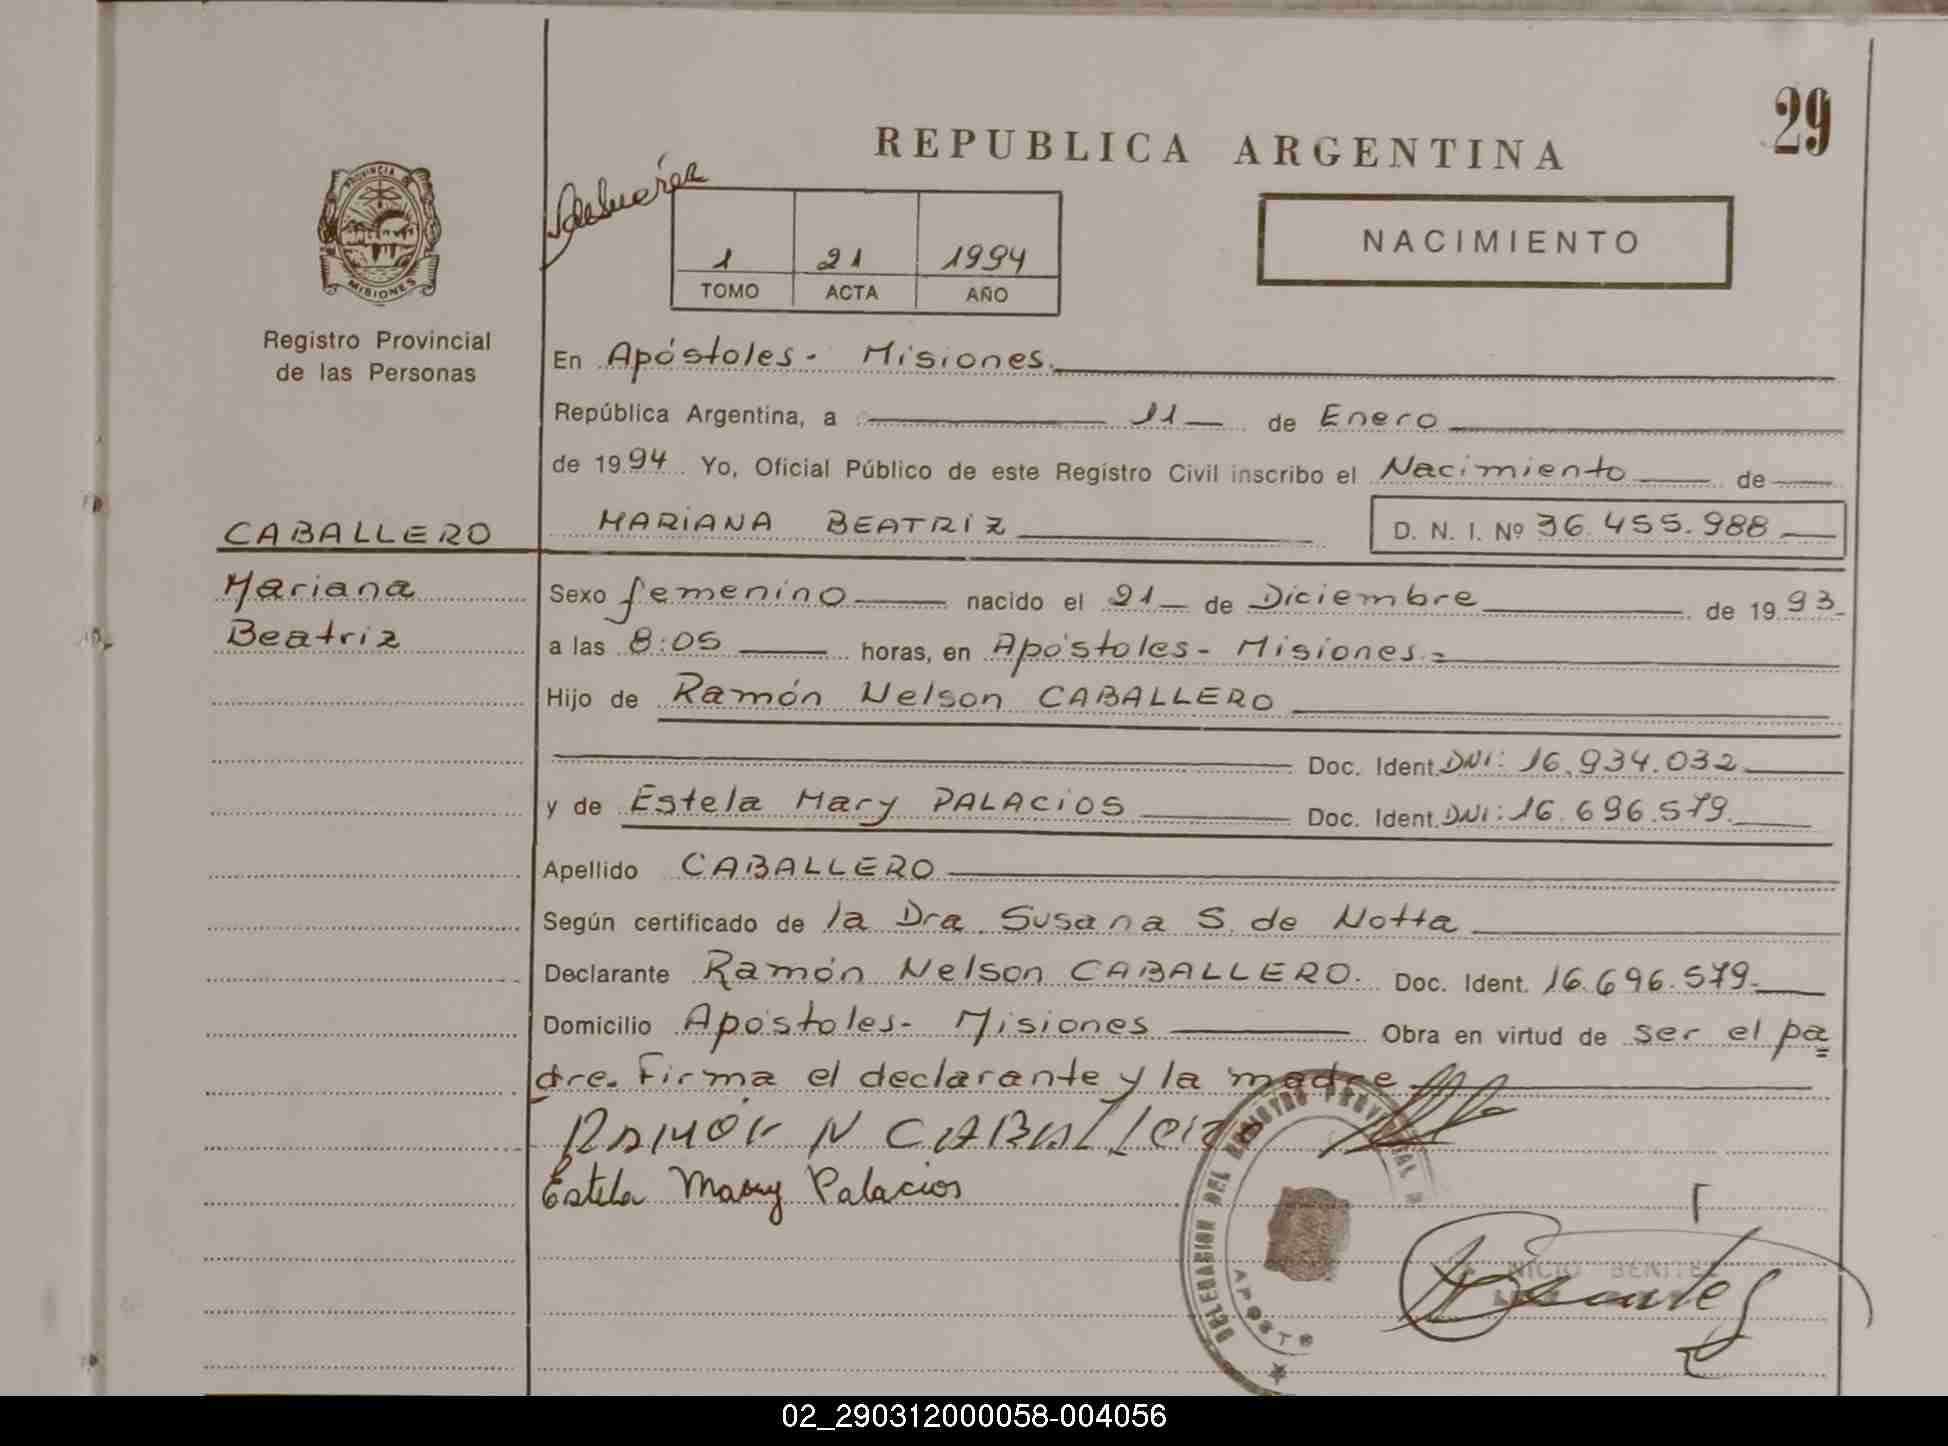 29
REPUBLICA ARGENTINA
PROVINCIA DE
MISIONES
NACIMIENTO
1 21 1994
TOMO ACTA AÑO
Registro Provincial
de las Personas
En Apóstoles - Misiones.
República Argentina, a 11 de Enero
de 1994 Yo, Oficial Público de este Registro Civil inscribo el Nacimiento de
CABALLERO MARIANA BEATRIZ D. N. I. Nº 36.455.988
Mariana Sexo femenino nacido el 21 de Diciembre de 1993
Beatriz a las 8:05 horas, en Apóstoles - Misiones.=
Hijo de Ramón Nelson CABALLERO
Doc. Ident. DNI: 16.934.032
y de Estela Mary PALACIOS Doc. Ident. DNI: 16.696.579.
Apellido CABALLERO
Según certificado de la Dra. Susana S. de Notta
Declarante Ramón Nelson CABALLERO. Doc. Ident. 16.696.579.
Domicilio Apóstoles - Misiones Obra en virtud de ser el pa=
dre. Firma el declarante y la madre
RAMÓN N CABALLERO
Estela Mary Palacios
DELEGACION DEL REGISTRO PROVINCIAL
APOSTO
NICIO BENITEZ
02_290312000058-004056